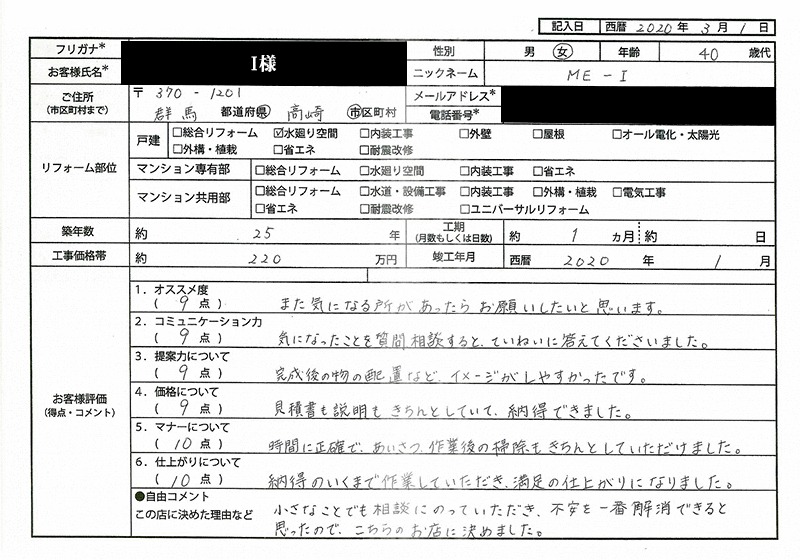 記入日 西暦 2020 年 3 月 1 日
フリガナ* 性別 男 女 年齢 40 歳代
お客様氏名* I様 ニックネーム ME-I
ご住所 〒370-1201 メールアドレス*
(市区町村まで) 群馬 都道府県 高崎 市区町村 電話番号*
リフォーム部位 戸建 □総合リフォーム ☑水廻り空間 □内装工事 □外壁 □屋根 □オール電化・太陽光
□外構・植栽 □省エネ □耐震改修
マンション専有部 □総合リフォーム □水廻り空間 □内装工事 □省エネ
マンション共用部 □総合リフォーム □水道・設備工事 □内装工事 □外構・植栽 □電気工事
□省エネ □耐震改修 □ユニバーサルリフォーム
築年数 約 25 年 工期 (月数もしくは日数) 約 1 ヵ月 約 日
工事価格帯 約 220 万円 竣工年月 西暦 2020 年 1 月
お客様評価
(得点・コメント)
1．オススメ度
( 9 点 ) また気になる所があったらお願いしたいと思います。
2．コミュニケーション力
( 9 点 ) 気になったことを質問相談すると、ていねいに答えてくださいました。
3．提案力について
( 9 点 ) 完成後の物の配置など、イメージがしやすかったです。
4．価格について
( 9 点 ) 見積書も説明もきちんとしていて、納得できました。
5．マナーについて
( 10 点 ) 時間に正確で、あいさつ、作業後の掃除もきちんとしていただけました。
6．仕上がりについて
( 10 点 ) 納得のいくまで作業していただき、満足の仕上がりになりました。
●自由コメント
この店に決めた理由など
小さなことでも相談にのっていただき、不安を一番解消できると
思ったので、こちらのお店に決めました。